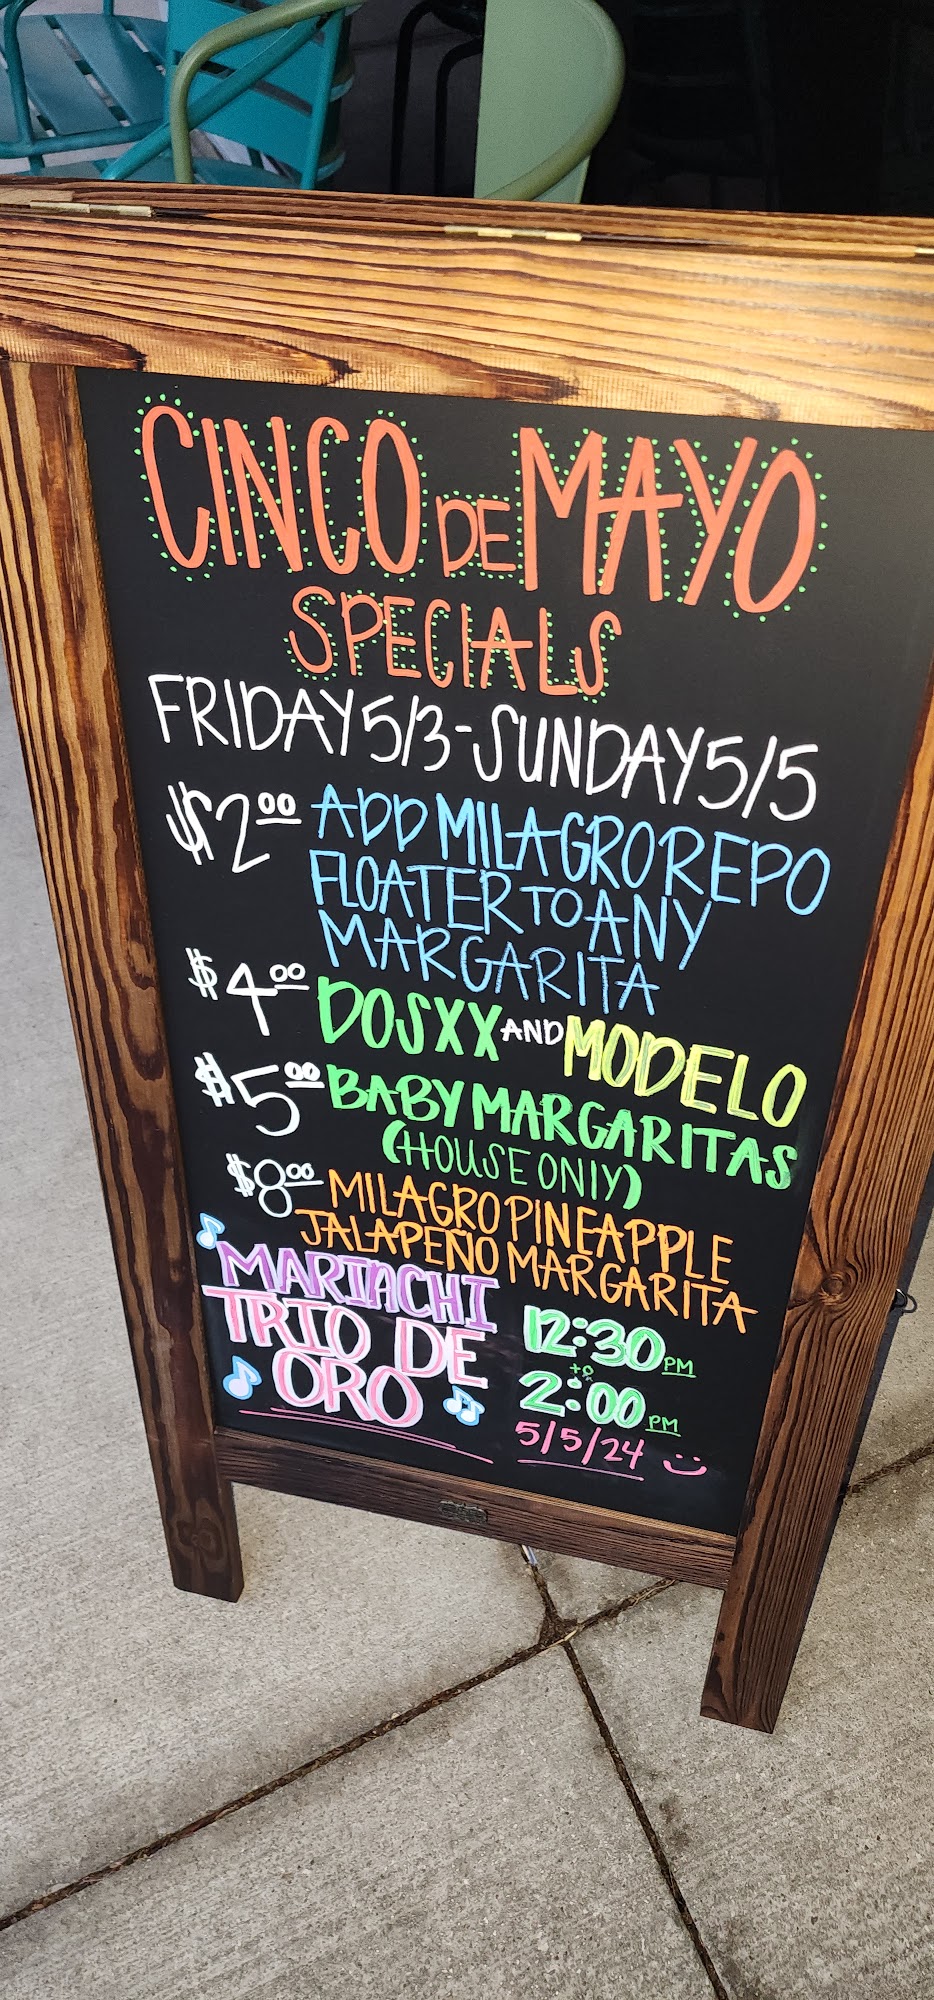 CINCO DE MAYO
SPECIALS
FRIDAY 5/3-SUNDAY 5/5
$2.00 ADD MILAGRO REPO
FLOATER TO ANY
MARGARITA
$4.00 DOSXX AND MODELO
$5.00 BABY MARGARITAS
(HOUSE ONLY)
$8.00 MILAGRO PINEAPPLE
JALAPEÑO MARGARITA
MARIACHI
TRIO DE
ORO
12:30 PM
to
2:00 PM
5/5/24